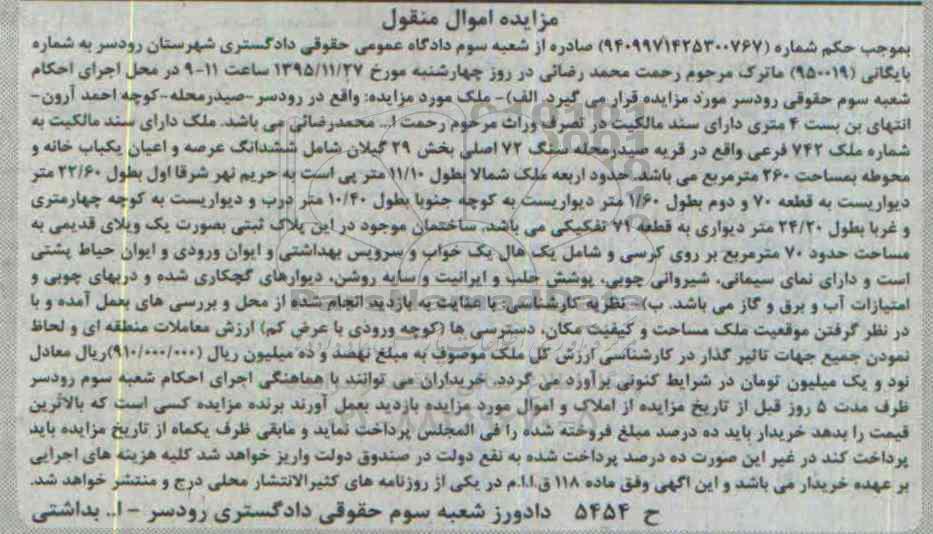 مزایده اموال منقول
بموجب حکم شماره (۹۴۰۹۹۷۱۴۲۵۳۰۰۷۶۷) صادره از شعبه سوم دادگاه عمومی حقوقی دادگستری شهرستان رودسر به شماره
بایگانی (۹۵۰۰۱۹) ماترک مرحوم رحمت محمد رضائی در روز چهارشنبه مورخ ۱۳۹۵/۱۱/۲۷ ساعت ۱۱-۹ در محل اجرای احکام
شعبه سوم حقوقی رودسر مورد مزایده قرار می گیرد. الف)- ملک مورد مزایده: واقع در رودسر-صیدرمحله-کوچه احمد آرون-
انتهای بن بست ۴ متری دارای سند مالکیت در تصرف وراث مرحوم رحمت ا.. محمدرضائی می باشد. ملک دارای سند مالکیت به
شماره ملک ۷۴۲ فرعی واقع در قریه صیدرمحله سنگ ۷۲ اصلی بخش ۲۹ گیلان شامل ششدانگ عرصه و اعیان یکباب خانه و
محوطه بمساحت ۲۶۰ مترمربع می باشد. حدود اربعه ملک شمالا بطول ۱۱/۱۰ متر پی است به حریم نهر شرقا اول بطول ۲۲/۶۰ متر
دیواریست به قطعه ۷۰ و دوم بطول ۱/۶۰ متر دیواریست به کوچه جنوبا بطول ۱۰/۴۰ متر درب و دیواریست به کوچه چهارمتری
و غربا بطول ۲۴/۲۰ متر دیواری به قطعه ۷۱ تفکیکی می باشد. ساختمان موجود در این پلاک ثبتی بصورت یک ویلای قدیمی به
مساحت حدود ۷۰ مترمربع بر روی کرسی و شامل یک هال یک خواب و سرویس بهداشتی و ایوان ورودی و ایوان حیاط پشتی
است و دارای نمای سیمانی، شیروانی چوبی، پوشش حلب و ایرانیت و سایه روشن، دیوارهای گچکاری شده و دربهای چوبی و
امتیازات آب و برق و گاز می باشد. ب)- نظریه کارشناسی: با عنایت به بازدید انجام شده از محل و بررسی های بعمل آمده و با
در نظر گرفتن موقعیت ملک مساحت و کیفیت مکان، دسترسی ها (کوچه ورودی با عرض کم) ارزش معاملات منطقه ای و لحاظ
نمودن جمیع جهات تاثیر گذار در کارشناسی ارزش کل ملک موصوف به مبلغ نهصد و ده میلیون ریال (۹۱۰/۰۰۰/۰۰۰)ریال معادل
نود و یک میلیون تومان در شرایط کنونی برآورد می گردد. خریداران می توانند با هماهنگی اجرای احکام شعبه سوم رودسر
ظرف مدت ۵ روز قبل از تاریخ مزایده از املاک و اموال مورد مزایده بازدید بعمل آورند برنده مزایده کسی است که بالاترین
قیمت را بدهد خریدار باید ده درصد مبلغ فروخته شده را فی المجلس پرداخت نماید و مابقی ظرف یکماه از تاریخ مزایده باید
پرداخت کند در غیر این صورت ده درصد پرداخت شده به نفع دولت در صندوق دولت واریز خواهد شد کلیه هزینه های اجرایی
بر عهده خریدار می باشد و این آگهی وفق ماده ۱۱۸ ق.ا.ا.م در یکی از روزنامه های کثیرالانتشار محلی درج و منتشر خواهد شد.
ح ۵۴۵۴ دادورز شعبه سوم حقوقی دادگستری رودسر - ا.. بداشتی